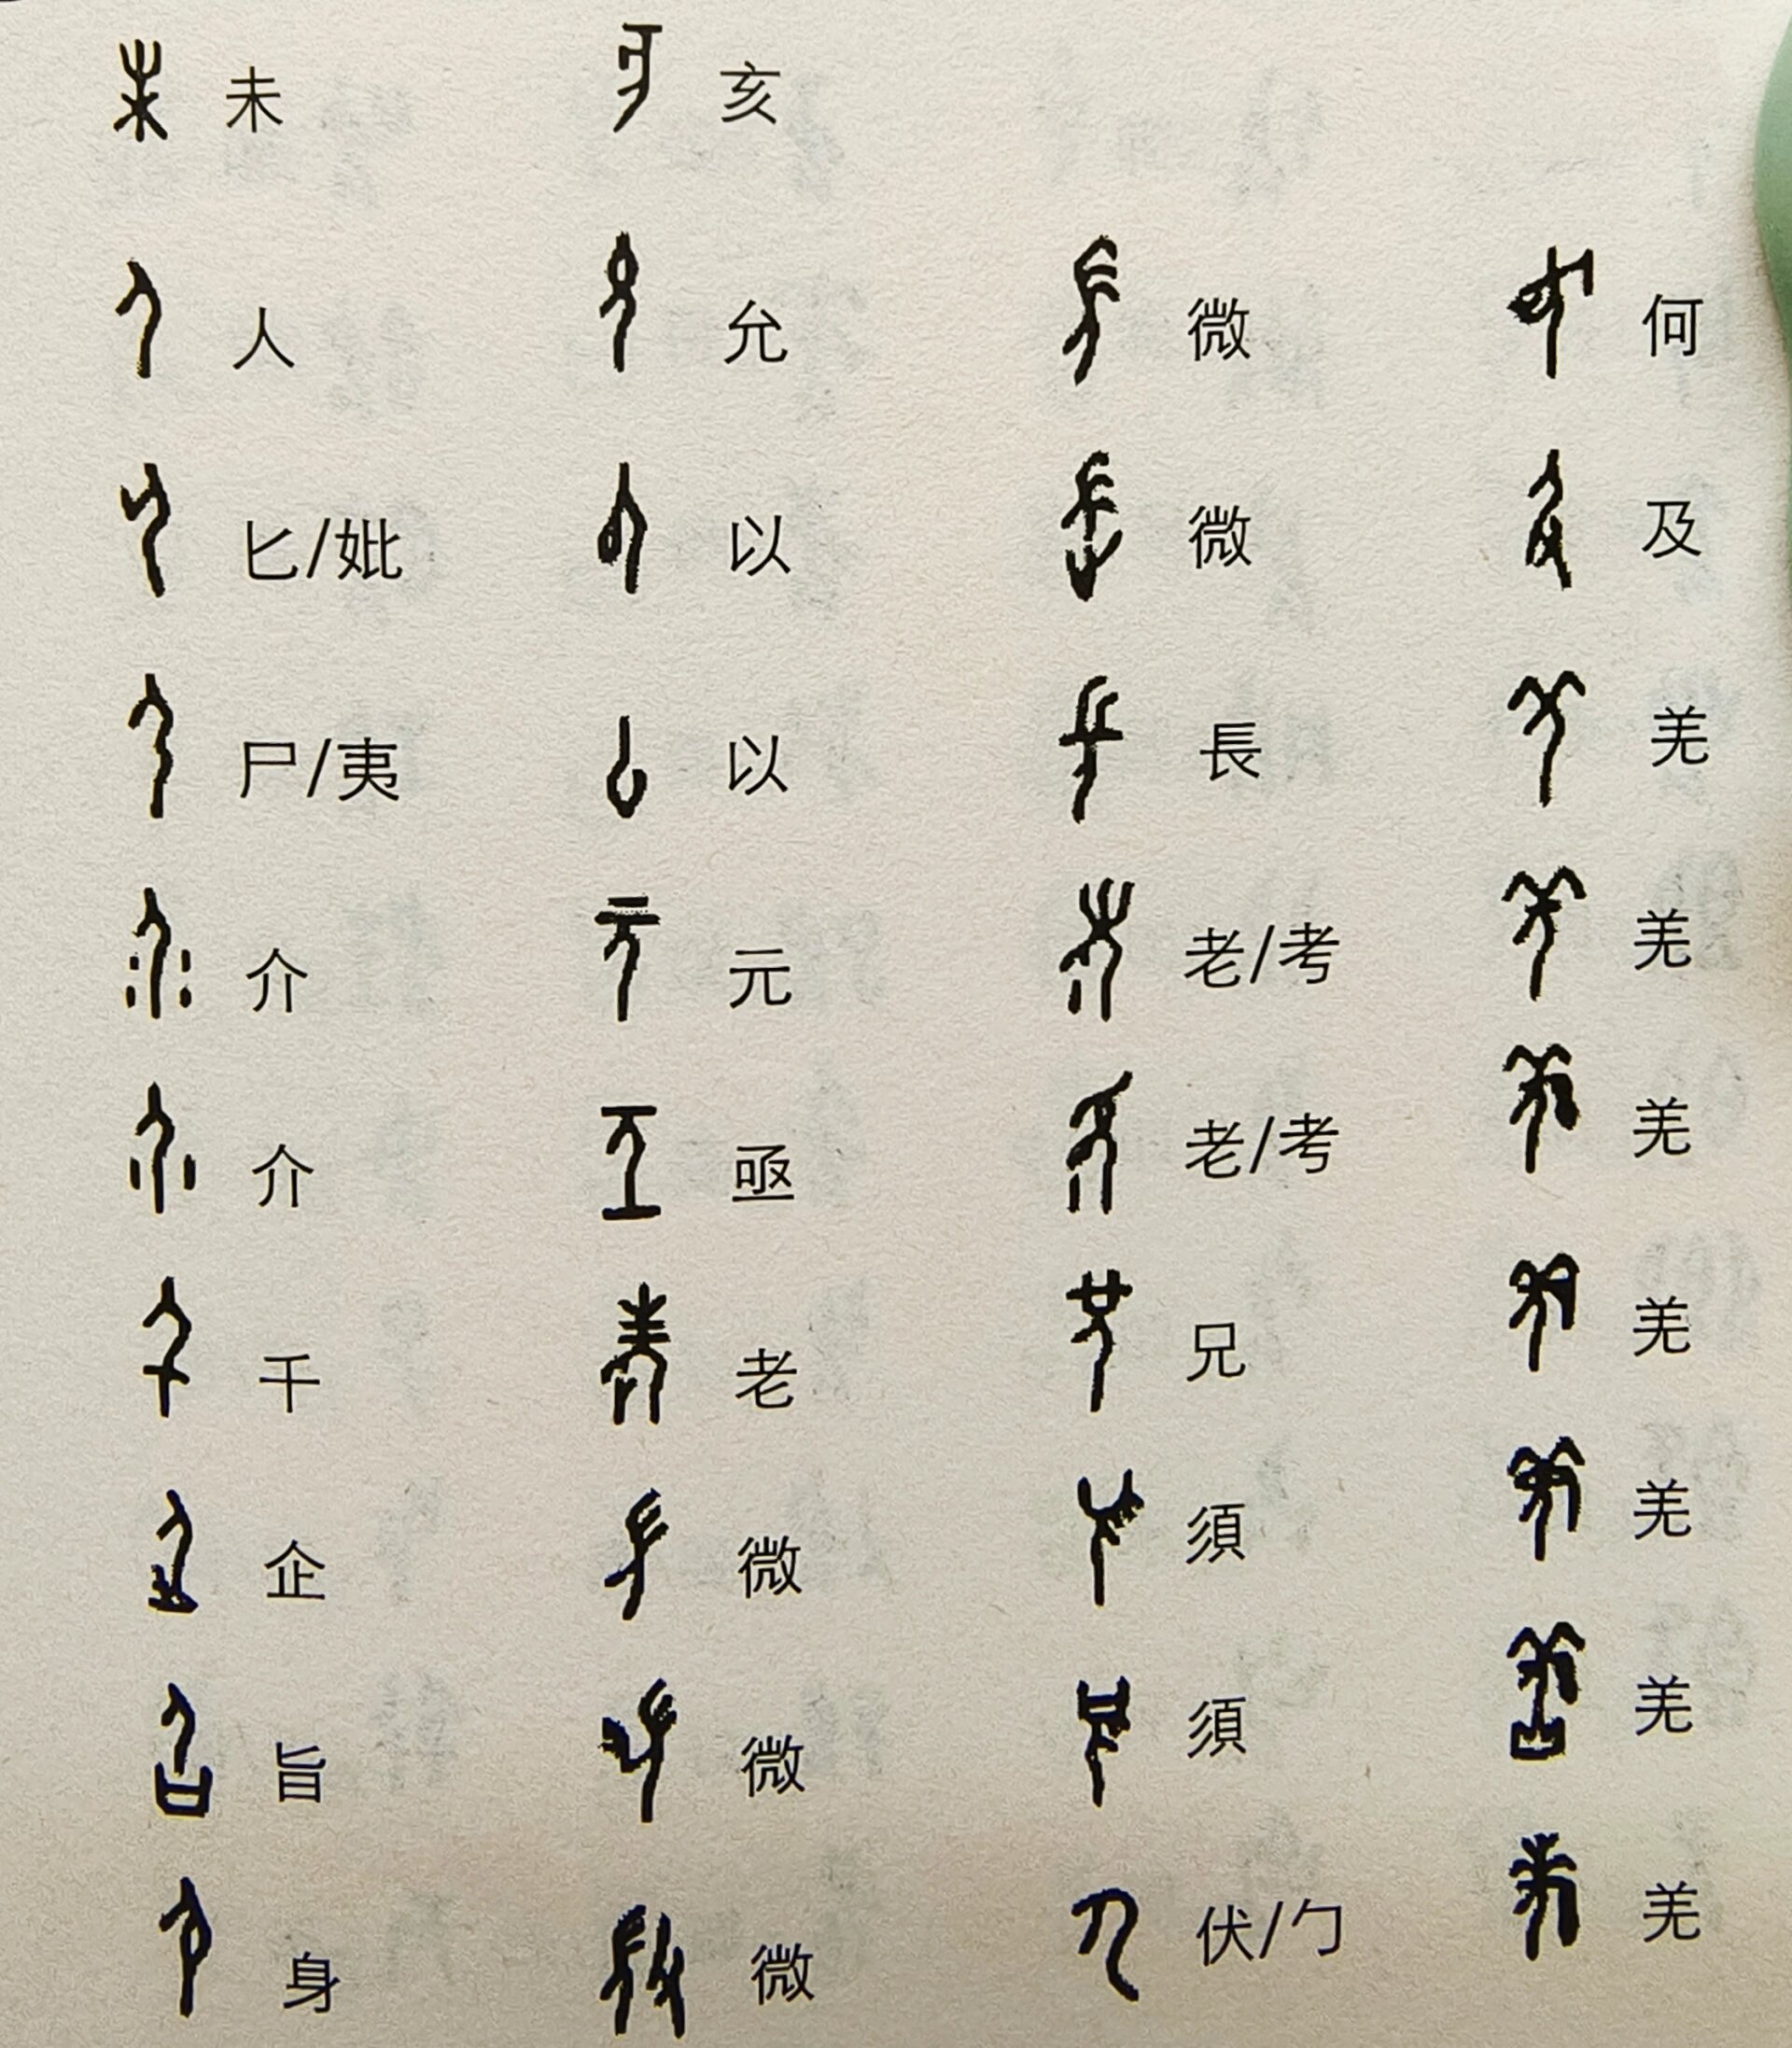 未 亥
人 允 微 何
匕/妣 以 微 及
尸/夷 以 長 羌
介 元 老/考 羌
介 亟 老/考 羌
千 老 兄 羌
企 微 須 羌
旨 微 須 羌
身 微 伏/勹 羌